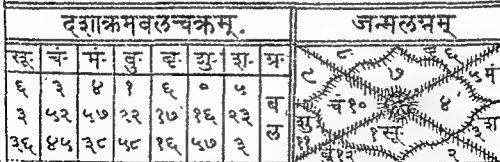 दशाक्रमबलचक्रम्.
रू॰ चं॰ मं॰ बु॰ बृ॰ शु॰ श॰ ग्र॰
६ ३ ४ १ ६ ० ५ ब
३ ५२ ५७ २२ ३७ १६ २३
३६ ४५ ३८ ५८ १६ ५७ ३ ल
जन्मलग्नम्
८ ६
९ ७ ५ मं
चं १० ४
शु ११ १ सू॰ ३ श
१२ २